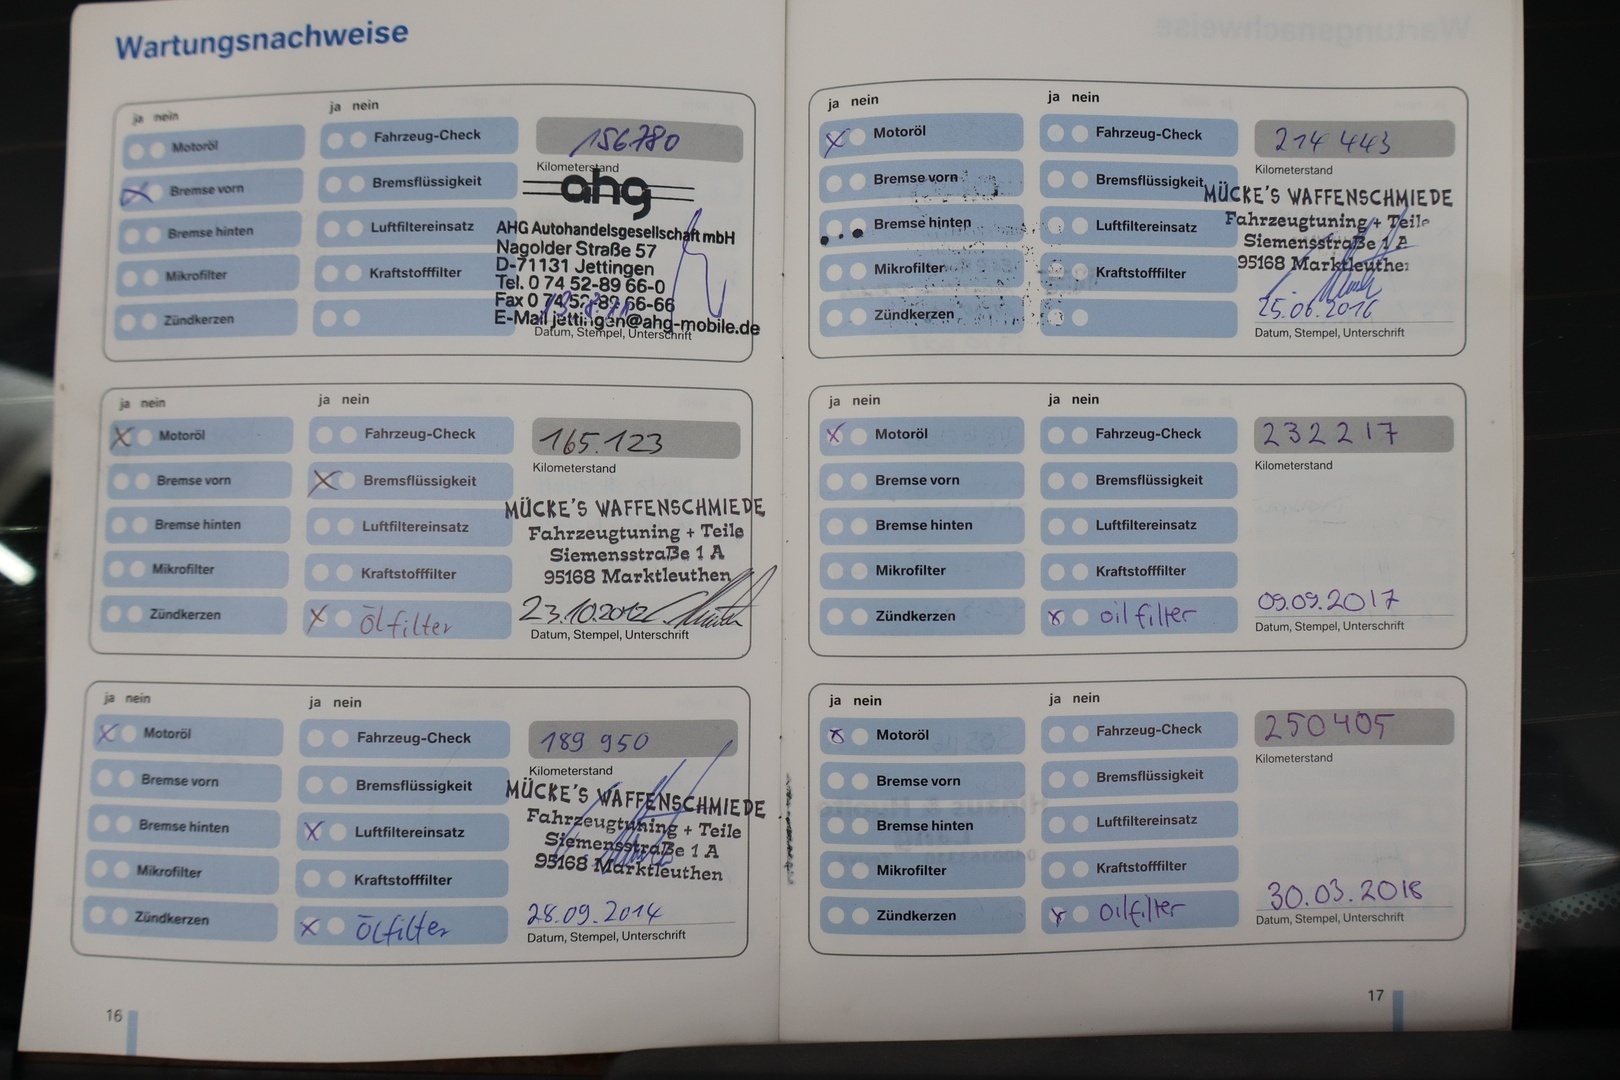 Wartungsnachweise
ja nein
ja nein
Motoröl
Fahrzeug-Check
156.780
Bremse vorn
Bremsflüssigkeit
Kilometerstand
Bremse hinten
Luftfiltereinsatz
Mikrofilter
Kraftstofffilter
Zündkerzen
ahg
AHG Autohandelsgesellschaft mbH
Nagolder Straße 57
D-71131 Jettingen
Tel. 0 74 52-89 66-0
Fax 0 74 52-89 66-66
E-Mail jettingen@ahg-mobile.de
Datum, Stempel, Unterschrift
ja nein
ja nein
Motoröl
Fahrzeug-Check
165.123
Bremse vorn
Bremsflüssigkeit
Kilometerstand
Bremse hinten
Luftfiltereinsatz
Mikrofilter
Kraftstofffilter
Zündkerzen
Ölfilter
MÜCKE'S WAFFENSCHMIEDE
Fahrzeugtuning + Teile
Siemensstraße 1 A
95168 Marktleuthen
23.10.2012
Datum, Stempel, Unterschrift
ja nein
ja nein
Motoröl
Fahrzeug-Check
189 950
Bremse vorn
Bremsflüssigkeit
Kilometerstand
Bremse hinten
Luftfiltereinsatz
Mikrofilter
Kraftstofffilter
Zündkerzen
Ölfilter
MÜCKE'S WAFFENSCHMIEDE
Fahrzeugtuning + Teile
Siemensstraße 1 A
95168 Marktleuthen
28.09.2014
Datum, Stempel, Unterschrift
16
ja nein
ja nein
Motoröl
Fahrzeug-Check
214 443
Bremse vorn
Bremsflüssigkeit
Kilometerstand
Bremse hinten
Luftfiltereinsatz
Mikrofilter
Kraftstofffilter
Zündkerzen
MÜCKE'S WAFFENSCHMIEDE
Fahrzeugtuning + Teile
Siemensstraße 1 A
95168 Marktleuthe
25.06.2016
Datum, Stempel, Unterschrift
ja nein
ja nein
Motoröl
Fahrzeug-Check
232 217
Bremse vorn
Bremsflüssigkeit
Kilometerstand
Bremse hinten
Luftfiltereinsatz
Mikrofilter
Kraftstofffilter
Zündkerzen
oilfilter
09.09.2017
Datum, Stempel, Unterschrift
ja nein
ja nein
Motoröl
Fahrzeug-Check
250405
Bremse vorn
Bremsflüssigkeit
Kilometerstand
Bremse hinten
Luftfiltereinsatz
Mikrofilter
Kraftstofffilter
Zündkerzen
oilfilter
30.03.2018
Datum, Stempel, Unterschrift
17